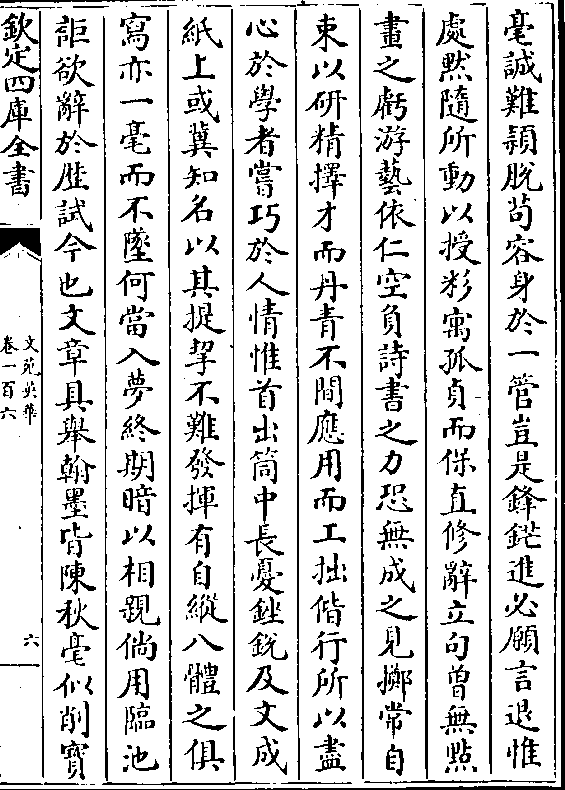 毫誠難頴脫茍容身於一管豈是鋒鋩進必願言退惟
處黙隨所動以授彩寓孤貞而保直修辭立句曽無㸃
畫之虧游藝依仁空負詩書之力恐無成之見擲常自
束以研精擇才而丹青不間應用而工拙偕行所以盡
心於學者嘗巧於人情惟首出筒中長憂銼銳及文成
紙上或冀知名以其提挈不難發揮有自縱八體之俱
寫亦一毫而不墜何當入夢終期暗以相親倘用臨池
詎欲辭於歴試今也文章具舉翰墨皆陳秋毫似削寳
欽定四庫全書
文苑英華
卷一百六
六